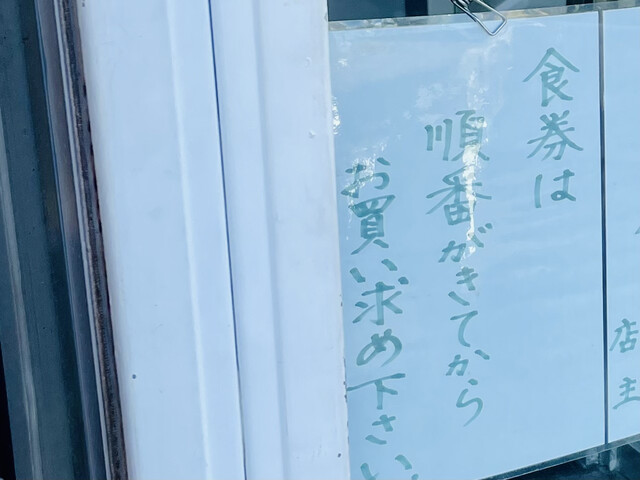 店主
食券は
順番がきてから
お買い求め下さい